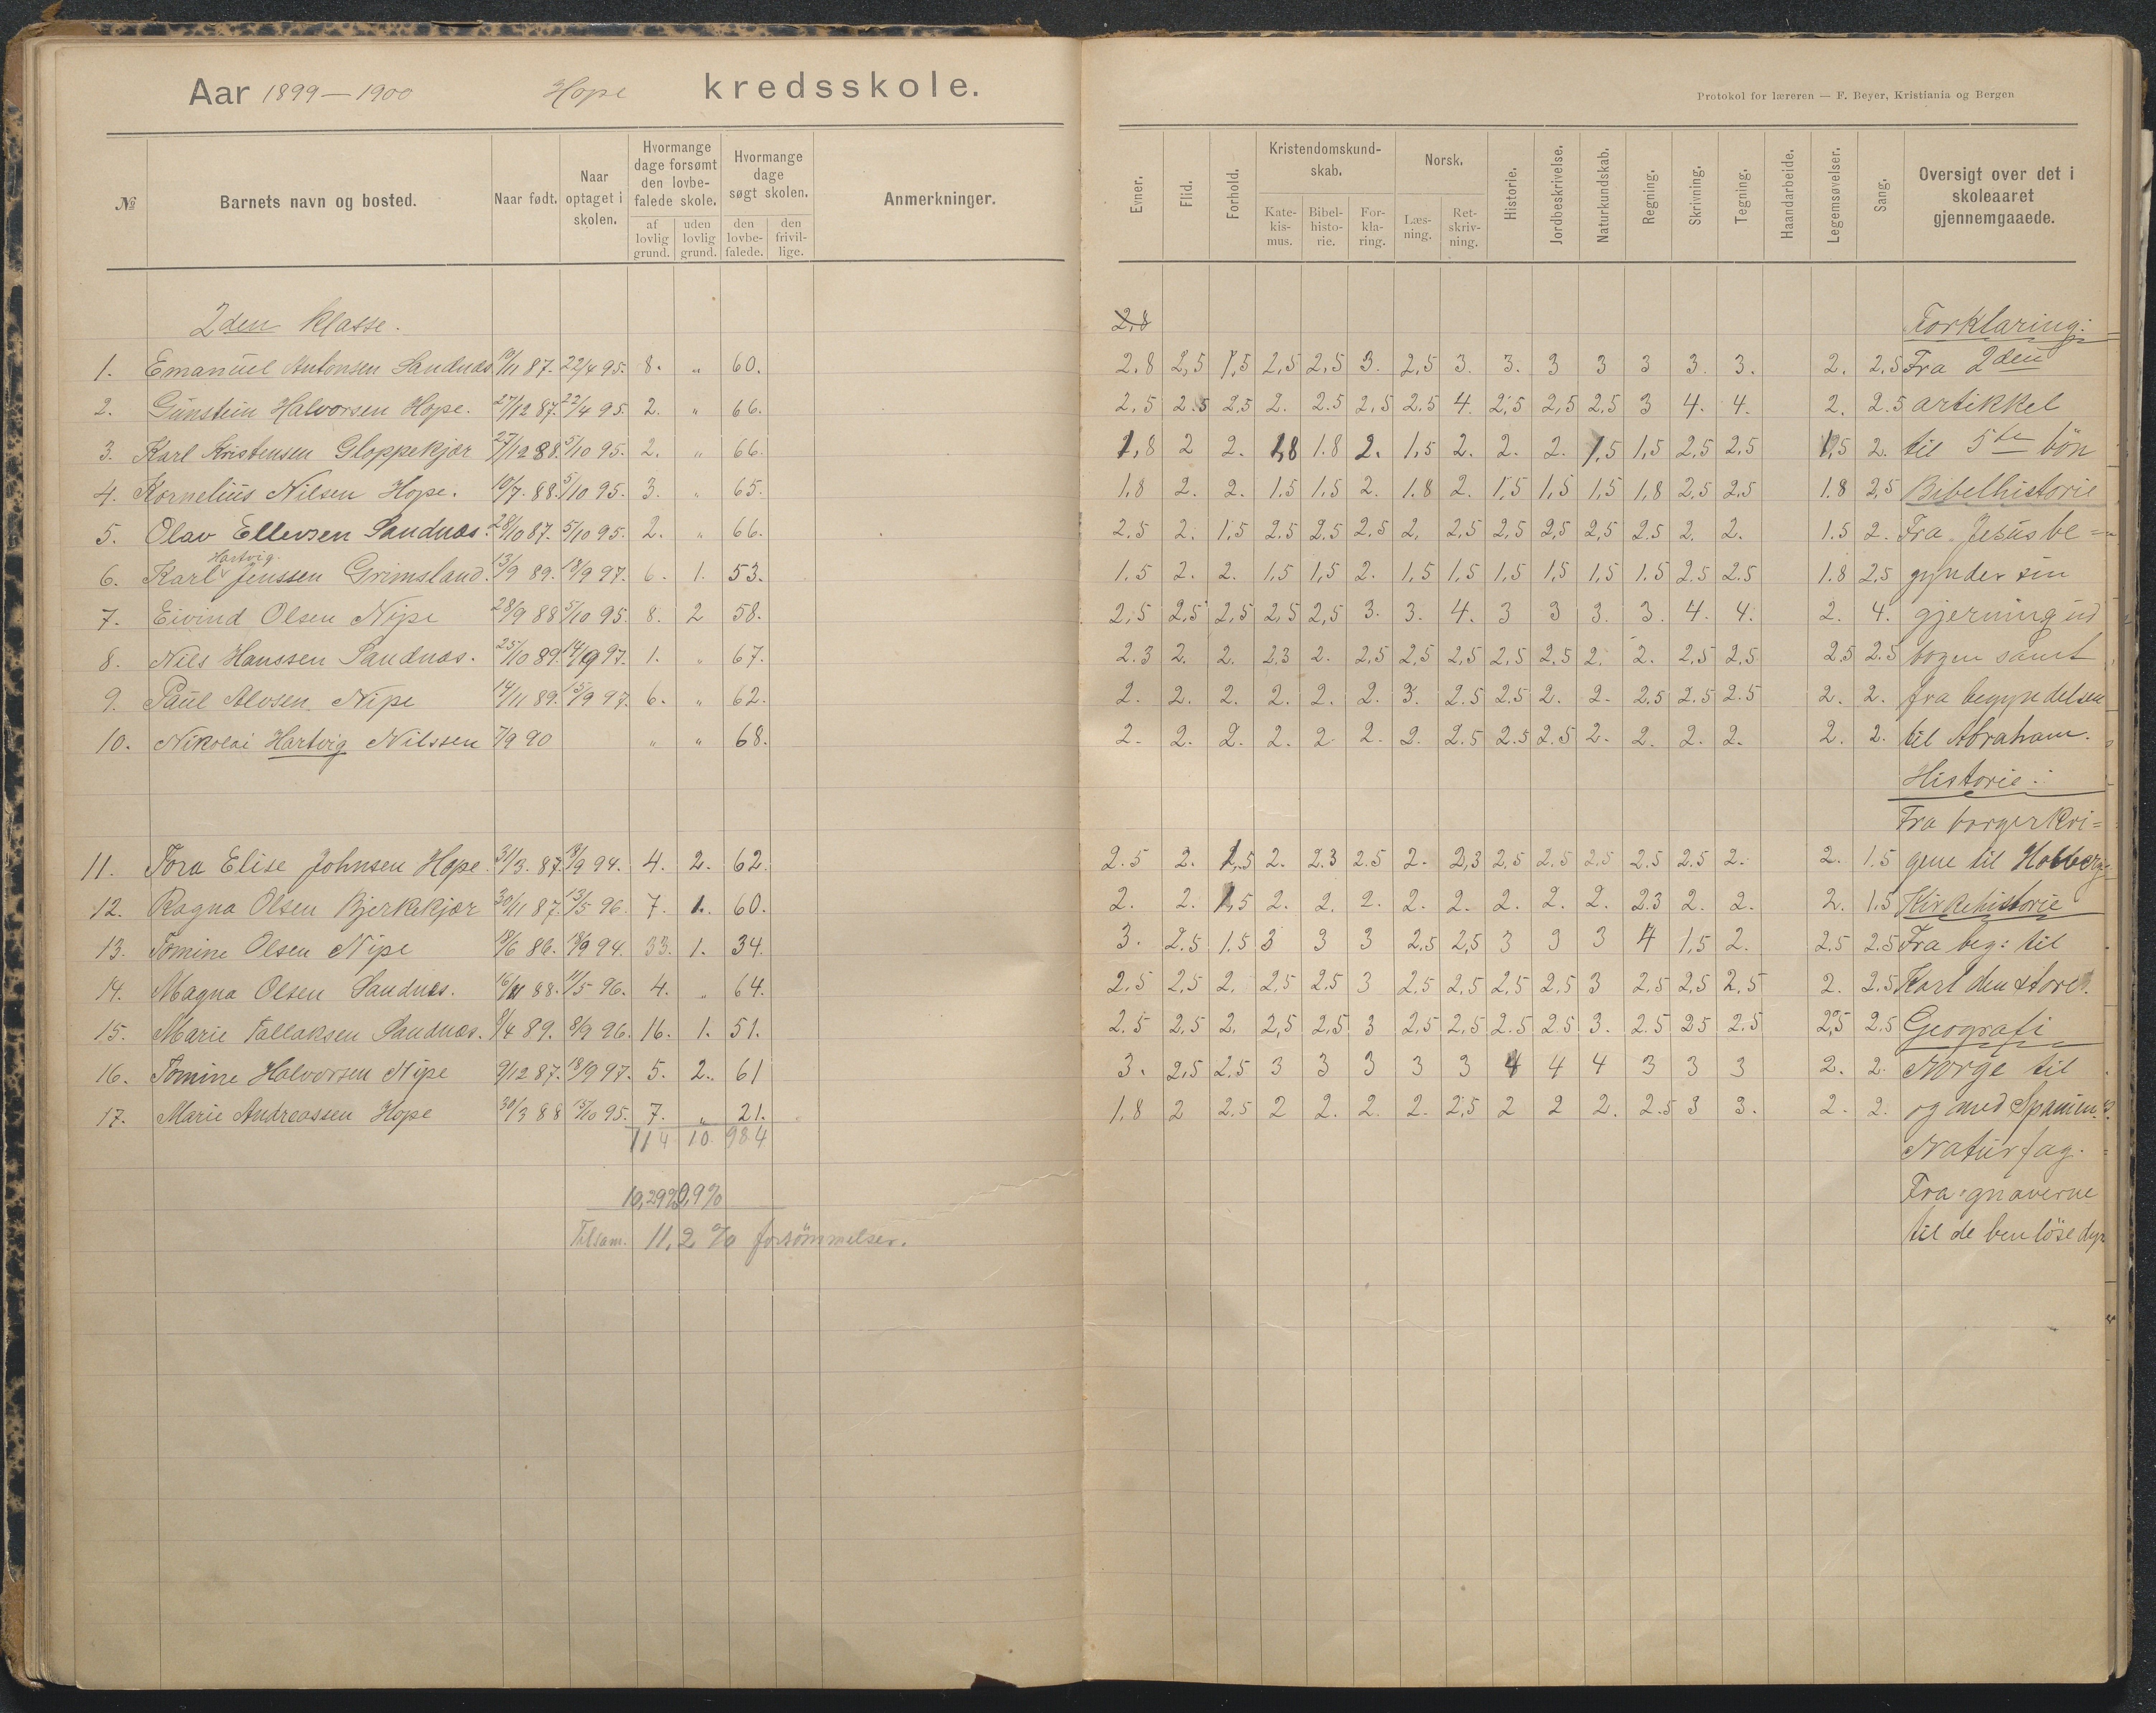 Aar 1899–1900 Hope kredsskole.
№ Barnets navn og bosted. Naar født. Naar optaget i skolen. Hvormange dage forsømt den lovbefalede skole. af lovlig grund. uden lovlig grund. Hvormange dage søgt skolen. den lovbefalede. den frivillige. Anmerkninger.
2den Klasse.
1. Emanuel Antonsen Sandnæs 10/11 87. 22/4 95. 8. „ 60.
2. Gunstein Halvorsen Hope. 27/12 87. 22/4 95. 2. „ 66.
3. Karl Kristensen Gloppekjær 27/12 88. 5/10 95. 2. „ 66.
4. Kornelius Nilsen Hope. 10/7. 88. 5/10 95. 3. „ 65.
5. Olav Ellevsen Sandnæs. 28/10 87. 5/10 95. 2. „ 66.
Hartvig
6. Karl Jenssen Grimsland. 13/9 89. 18/9 97. 6. 1. 53.
7. Eivind Olsen Nipe 28/9 88 5/10 95. 8. 2 58.
8. Nils Hanssen Sandnæs. 25/10 89. 14/9 97. 1. „ 67.
9. Paul Alvsen Nipe 14/11 89. 15/9 97. 6. „ 62.
10. Nikolai Hartvig Nilssen 7/9 90 „ „ 68.
11. Tora Elise Johnsen Hope. 31/3. 87. 18/9 94. 4. 2. 62.
12. Ragna Olsen Bjerkekjær 30/11 87. 13/5 96. 7. 1. 60.
13. Tomine Olsen Nipe 18/6 86. 18/9 94. 33. 1. 34.
14. Magna Olsen Sandnes. 16/11 88. 11/5 96. 4. „ 64.
15. Marie Tallaksen Sandnæs. 8/4 89. 8/9 96. 16. 1. 51.
16. Tomine Halvorsen Nipe 9/12 87. 18/9 97. 5. 2. 61
17. Marie Andreassen Hope 30/3 88 15/10 95. 7. „ 21.
114 10. 984
10,29% 0,9%
Tilsam. 11,2 % forsømmelser.
Protokol for læreren — F. Beyer, Kristiania og Bergen
Evner. Flid. Forhold. Kristendomskundskab. Katekismus. Bibelhistorie. Forklaring. Norsk. Læsning. Retskrivning. Historie. Jordbeskrivelse. Naturkundskab. Regning. Skrivning. Tegning. Haandarbeide. Legemsøvelser. Sang. Oversigt over det i skoleaaret gjennemgaaede.
2,8 Forklaring:
2.8 2,5 1,5 2,5 2,5 3. 2,5 3. 3. 3 3 3 3. 3. 2. 2.5 Fra 2den
2,5 2.5 2,5 2. 2.5 2,5 2.5 4. 2,5 2,5 2,5 3 4. 4. 2. 2.5 artikkel
1,8 2 2. 1,8 1.8 2. 1,5 2. 2. 2. 1,5 1,5 2,5 2,5 1,5 2. til 5te bön
1.8 2. 2. 1.5 1.5 2. 1.8 2. 1,5 1,5 1,5 1,8 2,5 2,5 1.8 2,5 Bibelhistorie
2.5 2. 1,5 2.5 2,5 2,5 2. 2,5 2,5 2,5 2,5 2.5 2. 2. 1.5 2. Fra Jesus be=
1.5 2. 2. 1,5 1,5 2. 1,5 1,5 1,5 1,5 1,5 1.5 2.5 2.5 1.8 2.5 gynder sin
2,5 2,5 2,5 2,5 2,5 3. 3. 4. 3 3 3. 3. 4. 4. 2. 4. gjerning ud
2.3 2. 2. 2.3 2. 2,5 2,5 2,5 2,5 2.5 2. 2. 2.5 2.5 2.5 2.5 bogen samt
2. 2. 2. 2. 2. 2. 3. 2.5 2.5 2. 2. 2,5 2.5 2.5 2. 2. fra begyndelsen
2. 2. 2. 2. 2 2. 2. 2.5 2.5 2.5 2. 2. 2. 2. 2. 2. til Abraham.
Historie:
Fra borgerkri=
2.5 2. 1,5 2. 2.3 2.5 2. 2,3 2,5 2.5 2.5 2.5 2.5 2. 2. 1.5 gene til Holberg
2. 2. 1,5 2. 2. 2. 2. 2. 2. 2. 2. 2.3 2. 2. 2. 1.5 Kirkehistorie
3. 2.5 1.5 3 3 3 2.5 2,5 3 3 3 4 1,5 2. 2.5 2.5 Fra beg: til
2.5 2,5 2. 2,5 2.5 3 2.5 2,5 2,5 2,5 3 2.5 2,5 2,5 2. 2.5 Karl den store.
2.5 2,5 2. 2,5 2,5 3 2,5 2,5 2.5 2.5 3. 2.5 2.5 2.5 2,5 2.5 Geografi
3. 2,5 2.5 3 3 3 3 3 4 4 4 3 3 3 2. 2. Norge til
1,8 2 2.5 2 2. 2. 2. 2,5 2 2 2. 2.5 3 3. 2. 2. og med Spanien.
Naturfag.
Fra gnaverne
til de benløse dyr